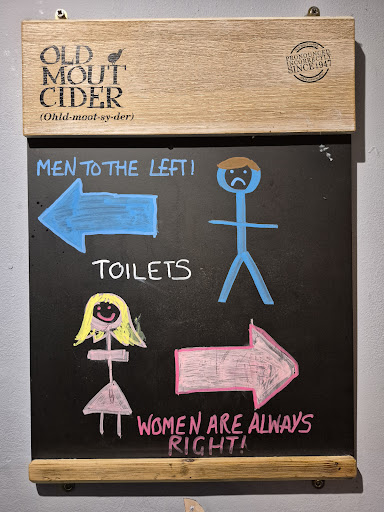 OLD
MOUT
CIDER
(Ohld-moot-sy-der)
PRONOUNCED
INCORRECTLY
SINCE 1947
MEN TO THE LEFT!
TOILETS
WOMEN ARE ALWAYS
RIGHT!